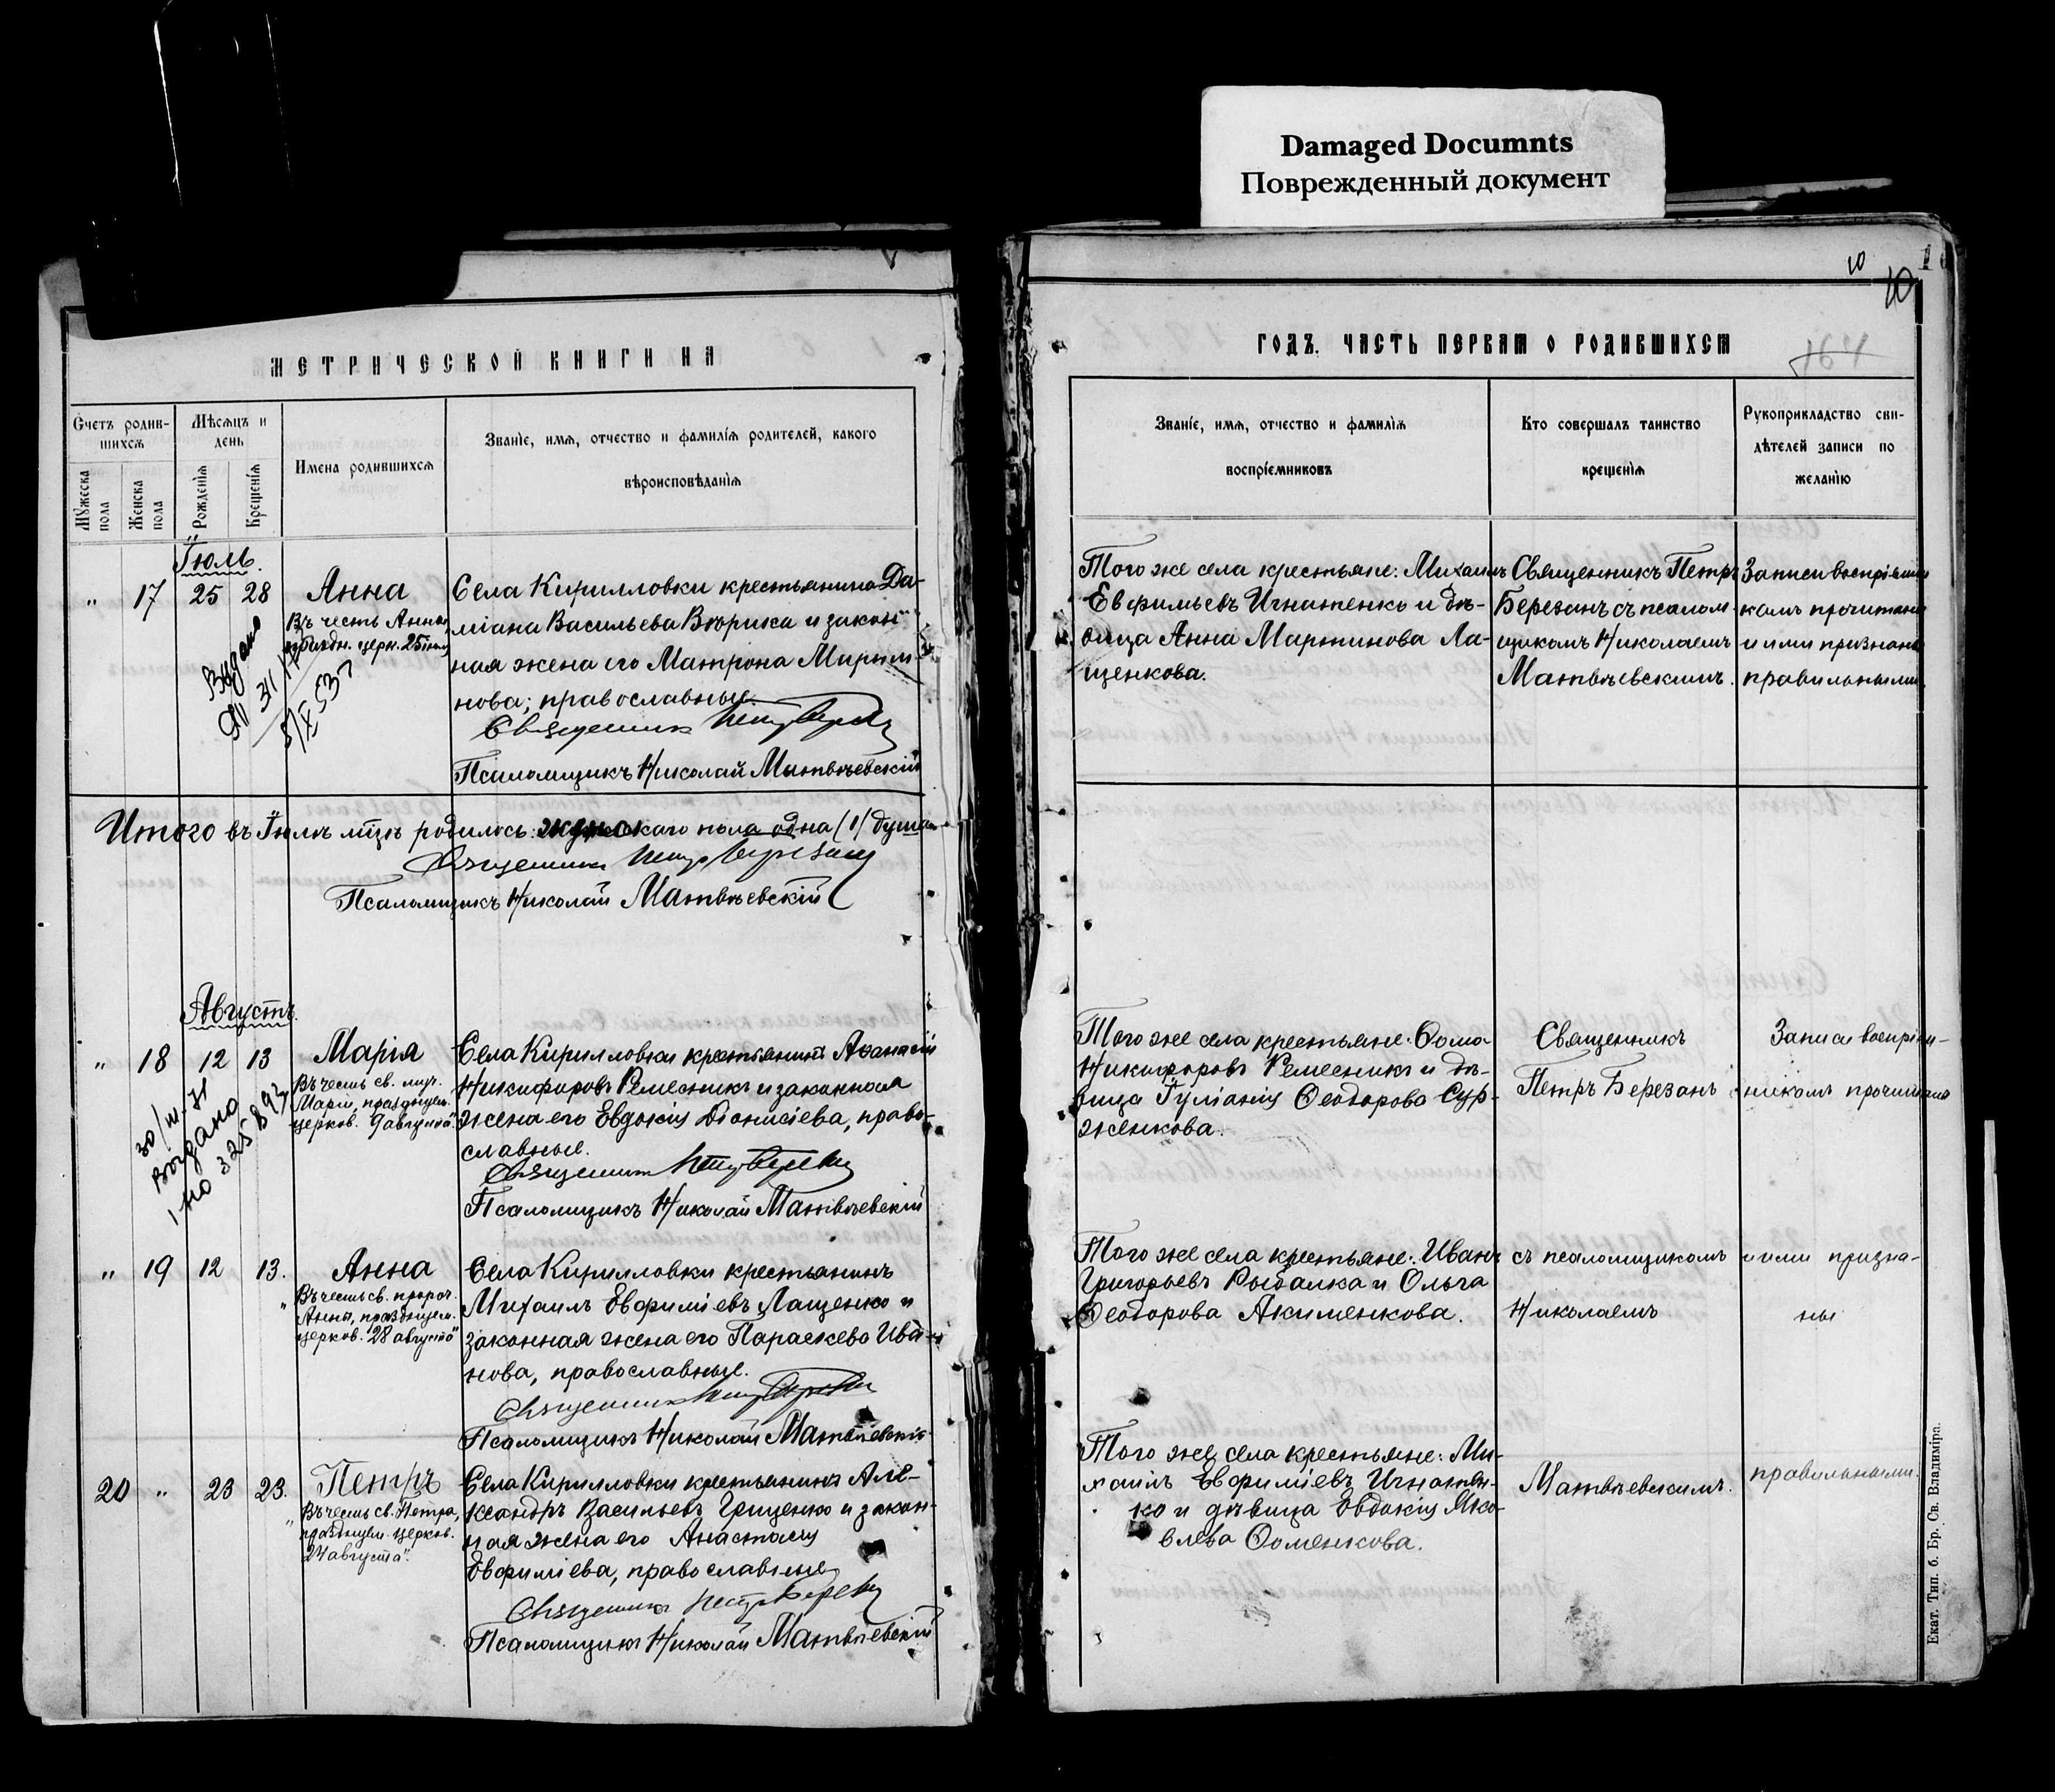 Damaged Documnts
Поврежденный документ
МЕТРИЧЕСКОЙ КНИГИ НА
Счетъ родив-
шихся
Мѣсяцъ и
день
Имена родившихся
Званіе, имя, отчество и фамилія родителей, какого
вѣроисповѣданія
Мужеска
пола
Женска
пола
Рожденія
Крещенія
Іюль.
" 17 25 28 Анна
Въ честь Анны,
праздн. церк. 25 іюля
Выдано
Села Кирилловки крестьянина Да-
міана Васильева и закон
ная жена его Матрона Марты-
нова; православные.
Священникъ Петръ Березанъ
Псаломщикъ Николай Матвѣевскій
Итого въ Іюлѣ м-цѣ родилось: женскаго пола одна (1) душа
Священникъ Петръ Березанъ
Псаломщикъ Николай Матвѣевскій
Августъ.
" 18 12 13 Марія
Въ честь св. муч.
Маріи, празднуем.
церков. 9 августа".
30/III-71
выдано
325893
Села Кирилловки крестьянинъ Аѳанасій
Никифоровъ Ремесникъ и законная
жена его Евдокія Діонисіева, право-
славные.
Священникъ Петръ Березанъ
Псаломщикъ Николай Матвѣевскій
" 19 12 13. Анна
"Въ честь св. пророч.
Анны, празднуем.
церков. 28 августа"
Села Кирилловки крестьянинъ
Михаилъ Евфиміевъ Лащенко и
законная жена его Параскева Ива-
нова, православные.
Священникъ Петръ Березанъ
Псаломщикъ Николай Матвѣевскій
20 " 23 23. Петръ
"Въ честь св. Петра,
празднуем. церков.
24 августа".
Села Кирилловки крестьянинъ Але-
ксандръ Васильевъ Гриценко и закон-
ная жена его Анастасія
Евфиміева, православные
Священникъ Петръ Березанъ
Псаломщикъ Николай Матвѣевскій
10
10
ГОДЪ. ЧАСТЬ ПЕРВАЯ О РОДИВШИХСЯ
Званіе, имя, отчество и фамилія
воспріемниковъ
Кто совершалъ таинство
крещенія
Рукоприкладство сви-
дѣтелей записи по
желанію
Того же села крестьяне: Михаилъ
Евфимьевъ Игнатенко и дѣ-
вица Анна Мартинова Ла-
щенкова.
Священникъ Петръ
Березанъ съ псалом-
щикомъ Николаемъ
Матвѣевскимъ.
Записи воспріемни
камъ прочитаны
и ими признаны
правильными.
Того же села крестьяне: Ѳома
Никифоровъ Ремесникъ и дѣ-
вица Іуліанія Ѳеодорова Сур-
женкова.
Священникъ
Петръ Березанъ
Записи воспріем-
никомъ прочитаны
Того же села крестьяне: Иванъ
Григорьевъ Рыбалка и Ольга
Ѳеодорова Акименкова.
съ псаломщикомъ
Николаемъ
и ими призна-
ны
Того же села крестьяне: Ми-
хаилъ Евфиміевъ Игнатен-
ко и дѣвица Евдокія Яко-
влева Ѳоменкова.
Матвѣевскимъ.
правильными.
Екат. Тип. б. Бр. Св. Владиміра.